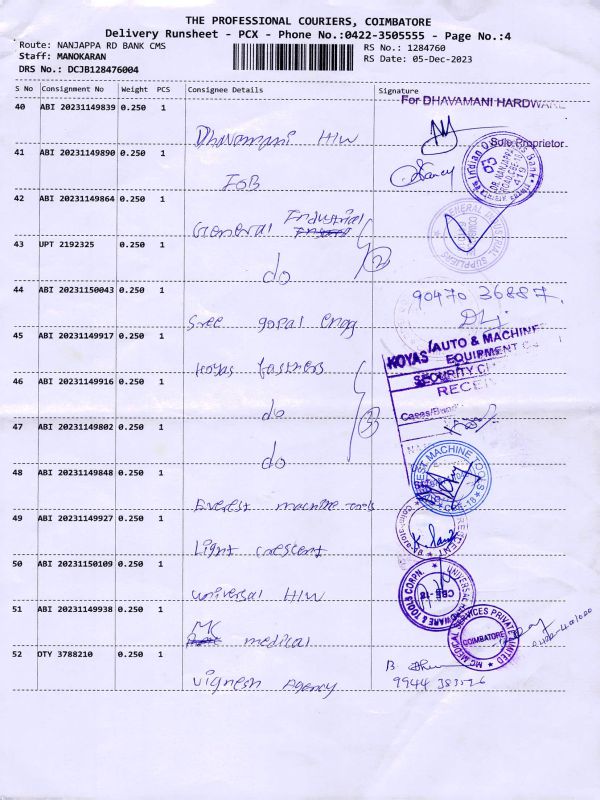 THE PROFESSIONAL COURIERS, COIMBATORE
Delivery Runsheet - PCX - Phone No.:0422-3505555 - Page No.:4
Route: NANJAPPA RD BANK CMS
RS No.: 1284760
Staff: MANOKARAN
RS Date: 05-Dec-2023
DRS No.: DCJB128476004
S No Consignment No Weight PCS Consignee Details Signature
40 ABI 20231149839 0.250 1
For DHAVAMANI HARDWARE
Dhavamani H/W
Sole Proprietor
41 ABI 20231149890 0.250 1
IOB
42 ABI 20231149864 0.250 1
General Industrial
GENERAL INDUSTRIAL SUPPLIERS
43 UPT 2192325 0.250 1
do
2
44 ABI 20231150043 0.250 1
90470 36887.
Sree gopal engg
45 ABI 20231149917 0.250 1
KOYAS AUTO & MACHINE
EQUIPMENT
SECURITY
RECE
Koyas fastners
46 ABI 20231149916 0.250 1
do
3
47 ABI 20231149802 0.250 1
do
48 ABI 20231149848 0.250 1
EVEREST MACHINE TOOLS
CBE-18
Everest machine tools
49 ABI 20231149927 0.250 1
Light crescent
50 ABI 20231150109 0.250 1
UNIVERSAL HARDWARE & TOOLS CORPN.
CBE-18
universal H/W
51 ABI 20231149938 0.250 1
MC medical
MC MEDICAL SERVICES PRIVATE LIMITED
COIMBATORE
52 OTY 3788210 0.250 1
Vignesh Agency
9944 383526